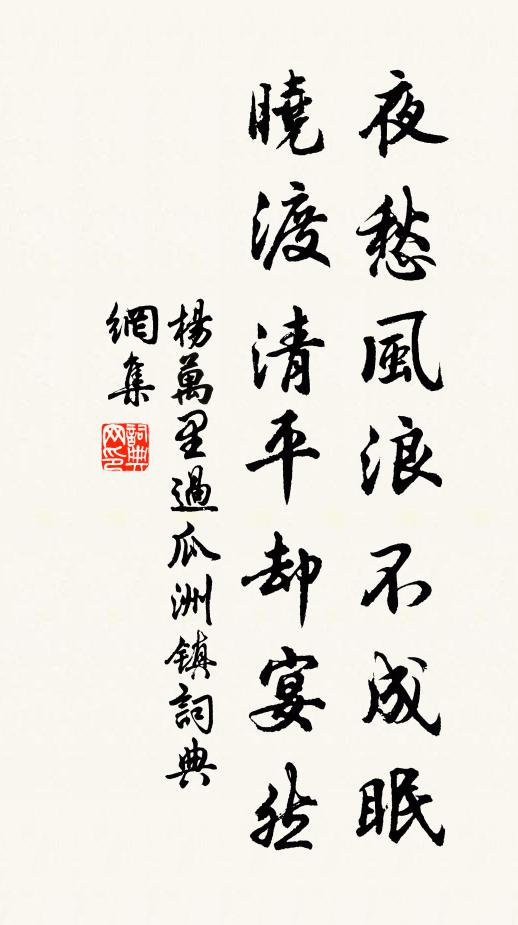 夜愁風浪不成眠
曉渡清平却宴然
楊萬里過瓜洲鎮詞典
網集
詞典
网印